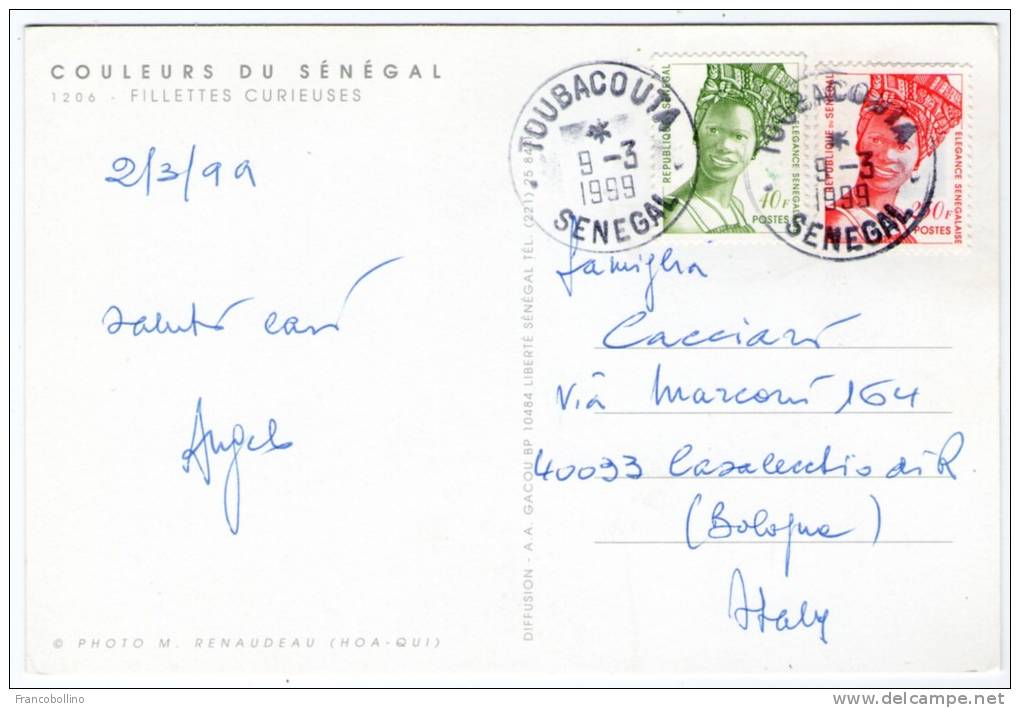 COULEURS DU SÉNÉGAL
1206 - FILLETTES CURIEUSES
2/3/99
saluti cari
Angelo
© PHOTO M. RENAUDEAU (HOA-QUI)
DIFFUSION - A.A. GACOU BP 10484 LIBERTÉ SÉNÉGAL TÉL. (221) 25 84
TOUBACOUTA
9 -3
1999
SENEGAL
REPUBLIQUE DU SENEGAL
ELEGANCE SENEGALAISE
40F
POSTES
TOUBACOUTA
9 -3
1999
SENEGAL
REPUBLIQUE DU SENEGAL
ELEGANCE SENEGALAISE
POSTES
famiglia
Cacciari
Via Marconi 164
40033 Casalecchio di R.
(Bologna)
Italy
Francobollino
www.delcampe.net